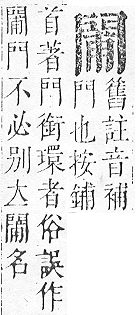 舊註音補
門也按鋪
首著門銜環者俗誤作
門不必別大名